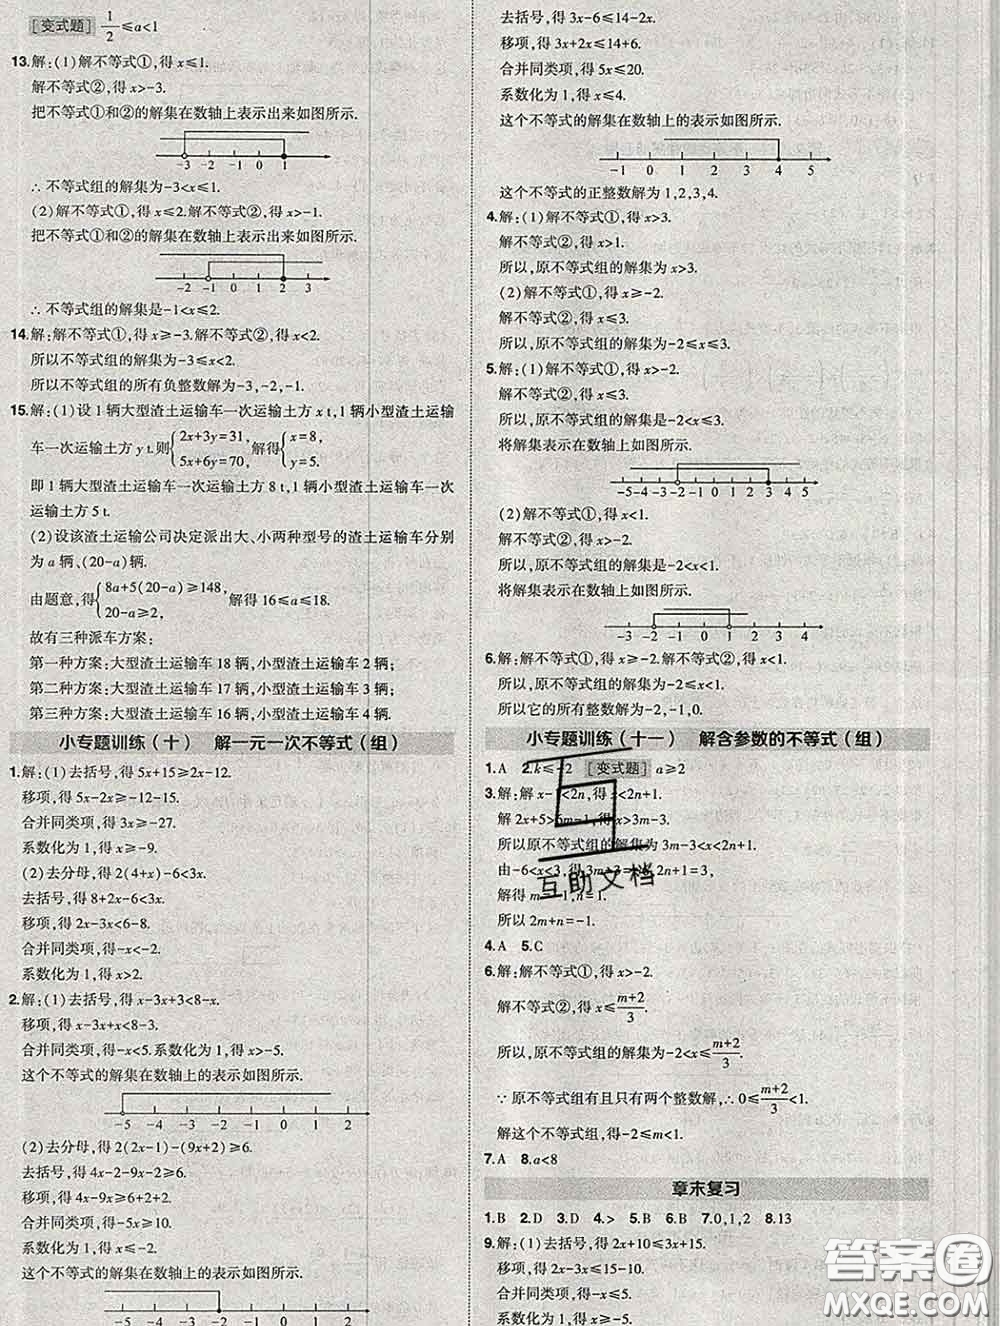 [变式题] 1/2≤a<1
13.解:(1)解不等式①,得x≤1.
解不等式②,得x>-3.
把不等式①和②的解集在数轴上表示出来如图所示.
-3 -2 -1 0 1
∴不等式组的解集为-3<x≤1.
(2)解不等式①,得x≤2.解不等式②,得x>-1.
把不等式①和②的解集在数轴上表示出来如图所示.
-2 -1 0 1 2 3
∴不等式组的解集是-1<x≤2.
14.解:解不等式①,得x≥-3.解不等式②,得x<2.
所以不等式组的解集为-3≤x<2.
所以不等式组的所有负整数解为-3,-2,-1.
15.解:(1)设1辆大型渣土运输车一次运输土方x t,1辆小型渣土运输
车一次运输土方y t.则{2x+3y=31, 5x+6y=70,解得{x=8, y=5.
即1辆大型渣土运输车一次运输土方8 t,1辆小型渣土运输车一次运
输土方5 t.
(2)设该渣土运输公司决定派出大、小两种型号的渣土运输车分别
为a辆、(20-a)辆.
由题意,得{8a+5(20-a)≥148, 20-a≥2,解得16≤a≤18.
故有三种派车方案:
第一种方案:大型渣土运输车18辆,小型渣土运输车2辆;
第二种方案:大型渣土运输车17辆,小型渣土运输车3辆;
第三种方案:大型渣土运输车16辆,小型渣土运输车4辆.
小专题训练(十) 解一元一次不等式(组)
1.解:(1)去括号,得5x+15≥2x-12.
移项,得5x-2x≥-12-15.
合并同类项,得3x≥-27.
系数化为1,得x≥-9.
(2)去分母,得2(4+x)-6<3x.
去括号,得8+2x-6<3x.
移项,得2x-3x<6-8.
合并同类项,得-x<-2.
系数化为1,得x>2.
2.解:(1)去括号,得x-3x+3<8-x.
移项,得x-3x+x<8-3.
合并同类项,得-x<5.系数化为1,得x>-5.
这个不等式的解集在数轴上的表示如图所示.
-5 -4 -3 -2 -1 0 1 2
(2)去分母,得2(2x-1)-(9x+2)≥6.
去括号,得4x-2-9x-2≥6.
移项,得4x-9x≥6+2+2.
合并同类项,得-5x≥10.
系数化为1,得x≤-2.
这个不等式的解集在数轴上的表示如图所示.
-5 -4 -3 -2 -1 0 1 2
去括号,得3x-6≤14-2x.
移项,得3x+2x≤14+6.
合并同类项,得5x≤20.
系数化为1,得x≤4.
这个不等式的解集在数轴上的表示如图所示.
-1 0 1 2 3 4 5
这个不等式的正整数解为1,2,3,4.
4.解:(1)解不等式①,得x>3.
解不等式②,得x>1.
所以,原不等式组的解集为x>3.
(2)解不等式①,得x≥-2.
解不等式②,得x≤3.
所以,原不等式组的解集为-2≤x≤3.
5.解:(1)解不等式①,得x>-2.
解不等式②,得x≤3.
所以,原不等式组的解集是-2<x≤3.
将解集表示在数轴上如图所示.
-5 -4 -3 -2 -1 0 1 2 3 4 5
(2)解不等式①,得x<1.
解不等式②,得x>-2.
所以,原不等式组的解集是-2<x<1.
将解集表示在数轴上如图所示.
-3 -2 -1 0 1 2 3 4
6.解:解不等式①,得x≥-2.解不等式②,得x<1.
所以,原不等式组的解集为-2≤x<1.
所以它的所有整数解为-2,-1,0.
小专题训练(十一) 解含参数的不等式(组)
1.A 2.k≤-2 [变式题] a≥2
3.解:解x- <2n,得x<2n+1.
解2x+5>6m-1,得x>3m-3.
所以原不等式组的解集为3m-3<x<2n+1.
由-6<x<3,得3m-3= 2n+1=3,
解得m=-1,n=1.
所以2m+n=-1.
4.A 5.C
6.解:解不等式①,得x>-2.
解不等式②,得x≤(m+2)/3.
所以,原不等式组的解集为-2<x≤(m+2)/3.
∵原不等式组有且只有两个整数解,∴0≤(m+2)/3<1.
解这个不等式组,得-2≤m<1.
7.A 8.a<8
章末复习
1.B 2.D 3.D 4.> 5.B 6.B 7.0,1,2 8.13
9.解:(1)去括号,得2x+10≤3x+15.
移项,得2x-3x≤15-10.
合并同类项,得-x≤5.
系数化为1,得x≥-5.
互助文档
答案圈
MXQE.COM